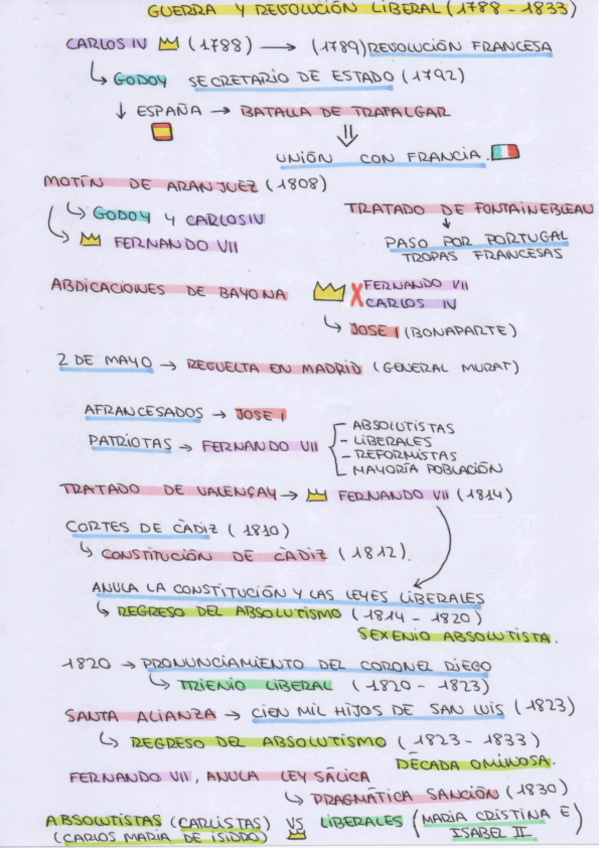 GUERRA Y REVOLUCIÓN LIBERAL (1788 - 1833)
CARLOS IV (1788) → (1789) REVOLUCIÓN FRANCESA
↳ GODOY SECRETARIO DE ESTADO (1792)
↓ ESPAÑA → BATALLA DE TRAFALGAR
⇓
UNIÓN CON FRANCIA.
MOTÍN DE ARANJUEZ (1808)
↳ GODOY Y CARLOS IV
↳ FERNANDO VII
TRATADO DE FONTAINEBLEAU
↓
PASO POR PORTUGAL
TROPAS FRANCESAS
ABDICACIONES DE BAYONA X FERNANDO VII
CARLOS IV
↳ JOSE I (BONAPARTE)
2 DE MAYO → REVUELTA EN MADRID (GENERAL MURAT)
AFRANCESADOS → JOSE I
PATRIOTAS → FERNANDO VII
- ABSOLUTISTAS
- LIBERALES
- REFORMISTAS
- MAYORÍA POBLACIÓN
TRATADO DE VALENÇAY → FERNANDO VII (1814)
CORTES DE CÀDIZ (1810)
↳ CONSTITUCIÓN DE CÀDIZ (1812).
ANULA LA CONSTITUCIÓN Y LAS LEYES LIBERALES
↳ REGRESO DEL ABSOLUTISMO (1814 - 1820)
SEXENIO ABSOLUTISTA.
1820 → PRONUNCIAMIENTO DEL CORONEL DIEGO
↳ TRIENIO LIBERAL (1820 - 1823)
SANTA ALIANZA → CIEN MIL HIJOS DE SAN LUIS (1823)
↳ REGRESO DEL ABSOLUTISMO (1823 - 1833)
DÉCADA OMINOSA.
FERNANDO VII, ANULA LEY SÁLICA
↳ PRAGMÁTICA SANCIÓN (1830)
ABSOLUTISTAS (CARLISTAS) VS LIBERALES (MARIA CRISTINA E
(CARLOS MARIA DE ISIDDO) ISABEL II